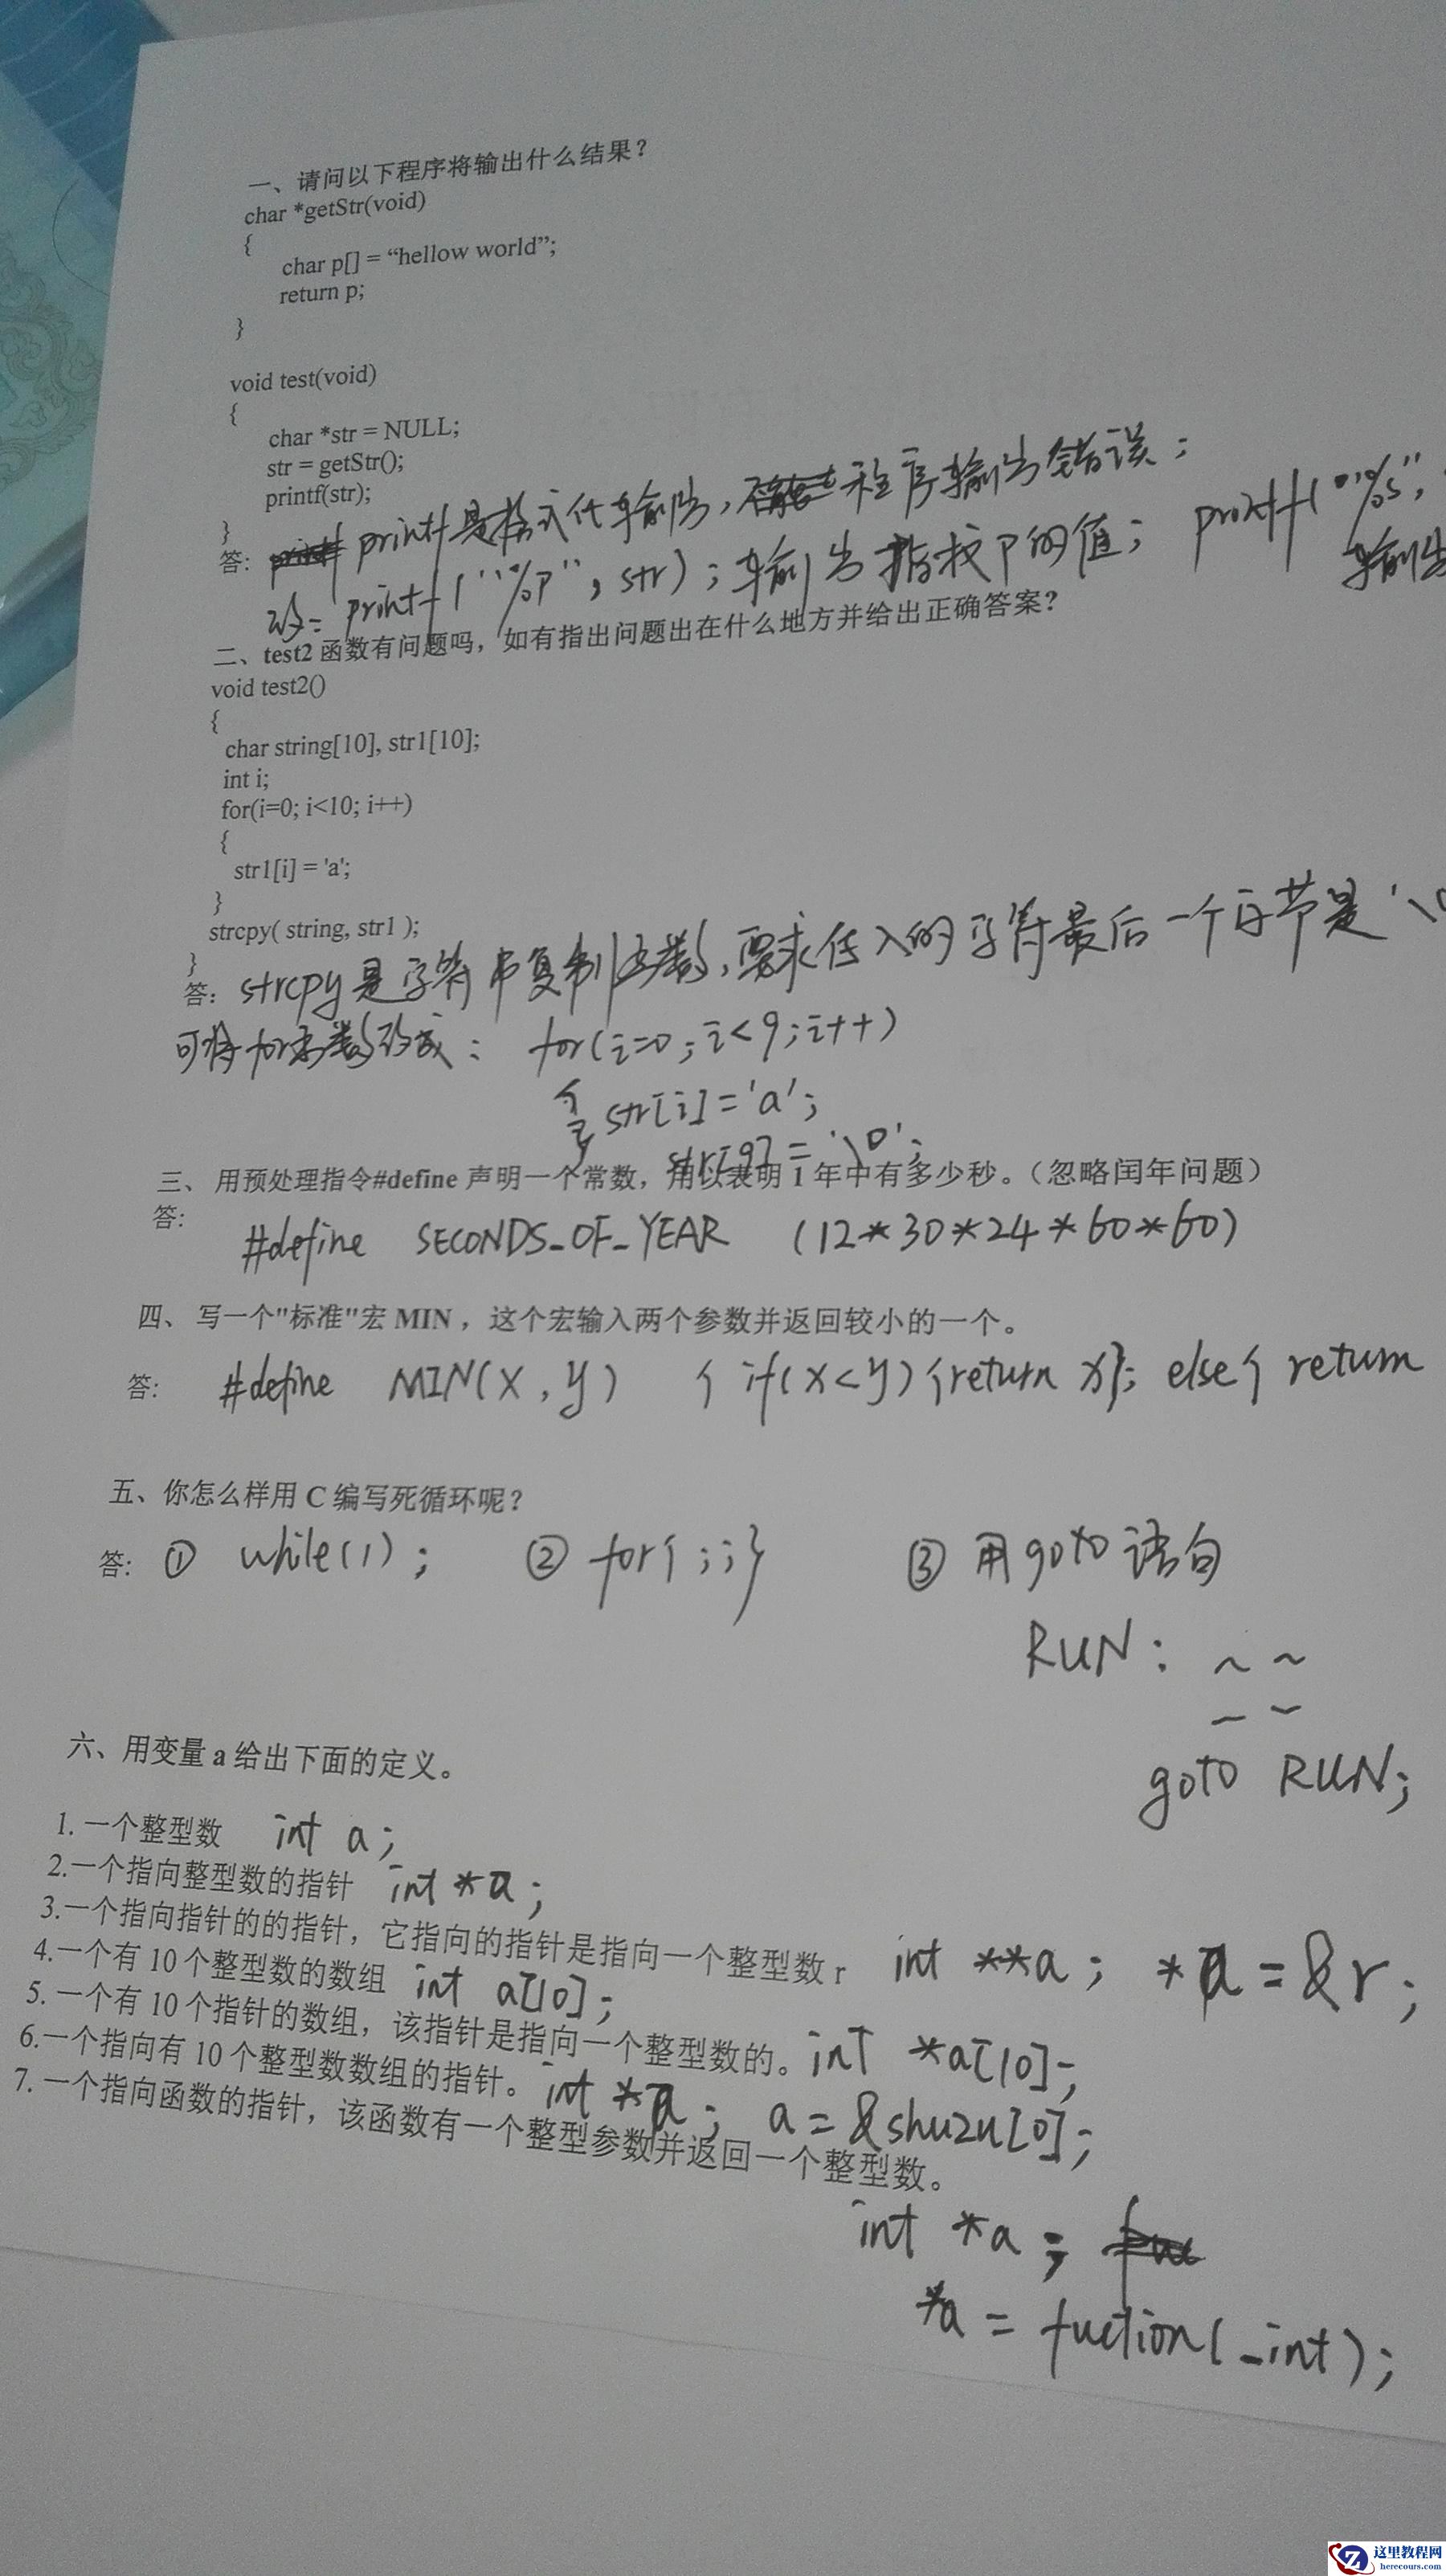 一、请问以下程序将输出什么结果？
char *getStr(void)
{
char p[] = “hellow world”;
return p;
}
void test(void)
{
char *str = NULL;
str = getStr();
printf(str);
}
答: printf是格式化输出, 程序输出错误;
改: printf("%p", str); 输出指针P的值; printf("%s",
输出
二、test2 函数有问题吗，如有指出问题出在什么地方并给出正确答案?
void test2()
{
char string[10], str1[10];
int i;
for(i=0; i<10; i++)
{
str1[i] = 'a';
}
strcpy( string, str1 );
}
答: strcpy是字符串复制函数, 要求传入的字符最后一个字节是'\0
可将for函数改成: for(i=0; i<9; i++)
{ str[i]='a';
str[9]='\0';
三、用预处理指令#define 声明一个常数，用以表明 1 年中有多少秒。（忽略闰年问题）
答: #define SECONDS_OF_YEAR (12*30*24*60*60)
四、写一个"标准"宏 MIN ，这个宏输入两个参数并返回较小的一个。
答: #define MIN(X,y) { if(x<y){return x}; else{ return
五、你怎么样用 C 编写死循环呢？
答: ① while(1); ② for{;;} ③ 用goto语句
RUN: ~ ~
~ ~
goto RUN;
六、用变量 a 给出下面的定义。
1. 一个整型数 int a;
2.一个指向整型数的指针 int *a;
3.一个指向指针的的指针，它指向的指针是指向一个整型数 r int **a; *a=&r;
4.一个有 10 个整型数的数组 int a[10];
5. 一个有 10 个指针的数组，该指针是指向一个整型数的。 int *a[10];
6.一个指向有 10 个整型数数组的指针。 int *a; a=&shuzu[0];
7. 一个指向函数的指针，该函数有一个整型参数并返回一个整型数。
int *a;
*a = fuction(_int);
这里教程网
herecours.com